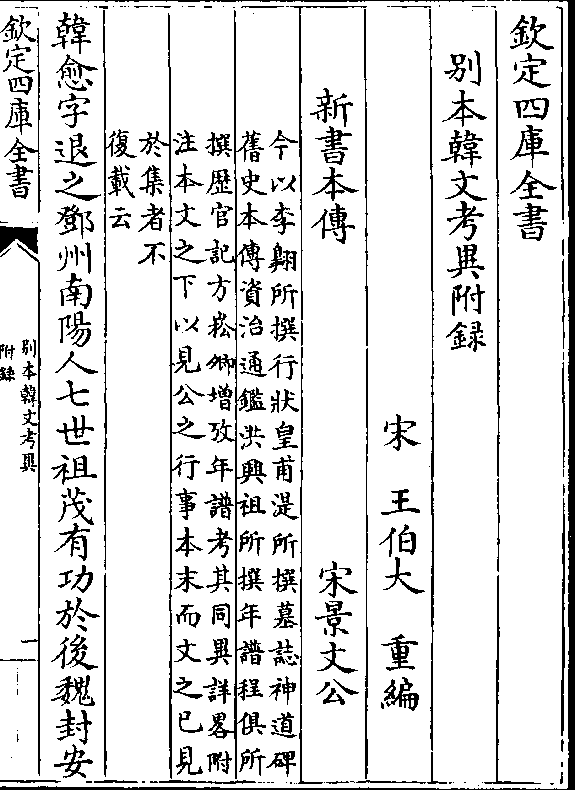 欽定四庫全書
别本韓文考異附録
宋　王伯大　重編
新書本傳　宋景文公
今以李翺所撰行狀皇甫湜所撰墓誌神道碑
舊史本傳資治通鑑洪興祖所撰年譜程俱所
撰歴官記方崧卿增攷年譜考其同異詳畧附
注本文之下以見公之行事本末而文之已見
於集者不
復載云
韓愈字退之鄧州南陽人七世祖茂有功於後魏封安
欽定四庫全書
别本韓文考異
附録
一